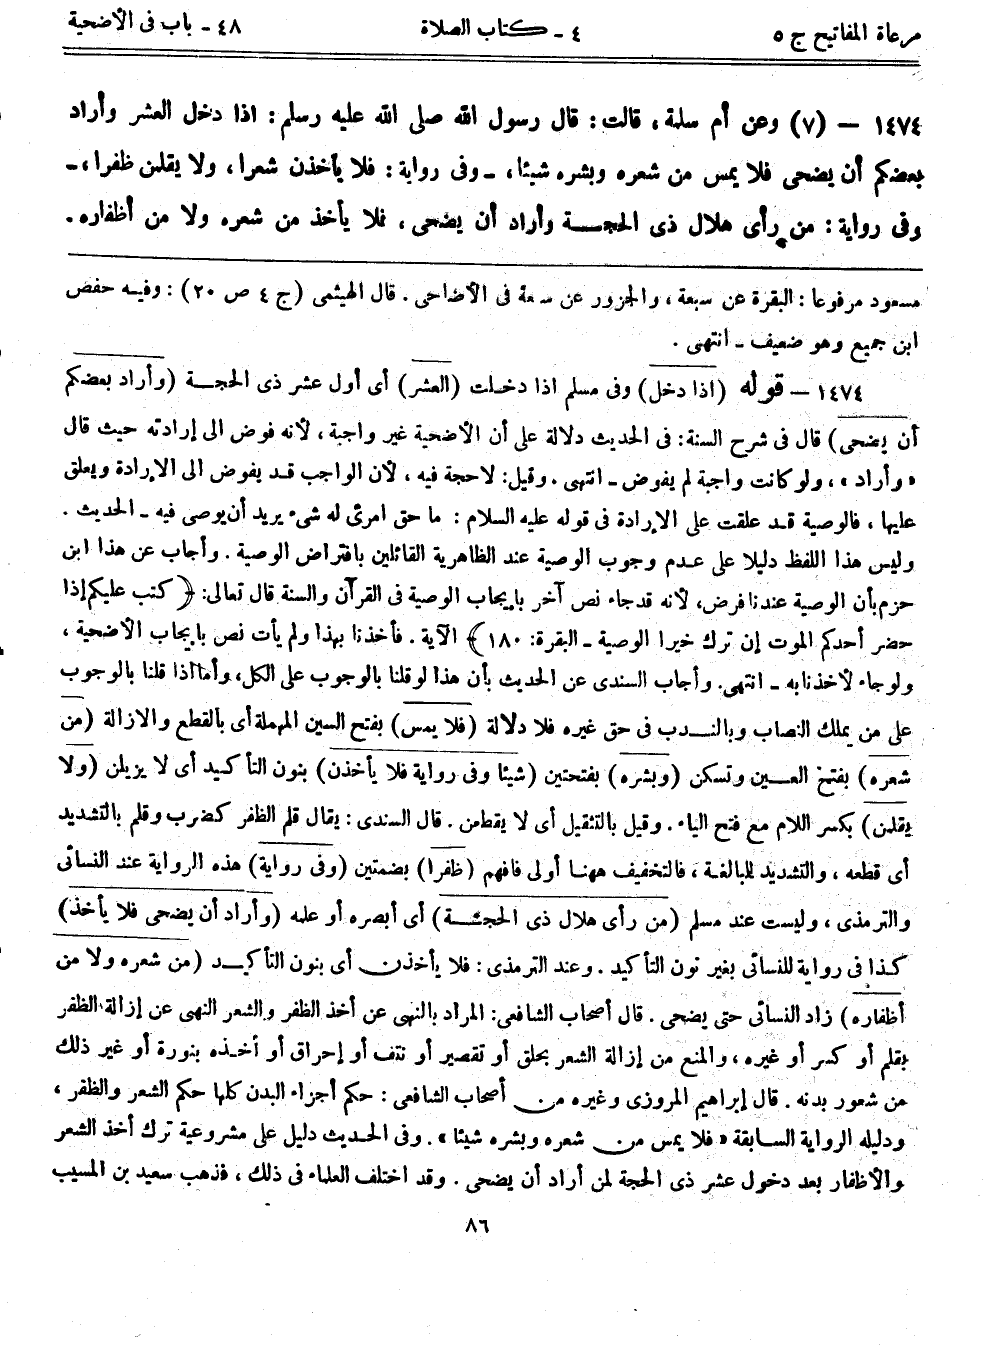 مرعاة المفاتيح ج ٥ ٤ - كتاب الصلاة ٤٨ - باب فى الأضحية
١٤٧٤ – (٧) وعن أم سلمة، قالت: قال رسول الله صلى الله عليه رسلم: اذا دخل العشر وأراد
بعضكم أن يضحى فلا يمس من شعره وبشره شيئا، - وفى رواية: فلا يأخذن شعرا، ولا يقلمن ظفرا، -
وفى رواية: من رأى هلال ذى الحجـــة وأراد أن يضحى، فلا يأخذ من شعره ولا من أظفاره.
مسعود مرفوعا: البقرة عن سبعة، والجزور عن سبعة فى الأضاحى. قال الهيثمى (ج ٤ ص ٢٠): وفيه حفص
ابن جميع وهو ضعيف - انتهى.
١٤٧٤ – قوله (اذا دخل) وفى مسلم اذا دخلت (العشر) أى أول عشر ذى الحجـة (وأراد بعضكم
أن يضحى) قال فى شرح السنة: فى الحديث دلالة على أن الأضحية غير واجبة، لأنه فوض الى إرادته حيث قال
«وأراد»، ولو كانت واجبة لم يفوض - انتهى. وقيل: لا حجة فيه، لأن الواجب قـد يفوض الى الإرادة ويعلق
عليها، فالوصية قـد علقت على الإرادة فى قوله عليه السلام: ما حق امرئ له شىء يريد أن يوصى فيه - الحديث.
وليس هذا اللفظ دليلا على عـدم وجوب الوصية عند الظاهرية القائلين بافتراض الوصية. وأجاب عن هذا ابن
حزم بأن الوصية عندنا فرض، لأنه قد جاء نص آخر بايجاب الوصية فى القرآن والسنة قال تعالى: ﴿ كتب عليكم إذا
حضر أحدكم الموت إن ترك خيرا الوصية - البقرة: ١٨٠ ﴾ الآية. فأخذنا بهذا ولم يأت نص بايجاب الأضحية،
ولو جاء لأخذنا به - انتهى. وأجاب السندى عن الحديث بأن هذا لو قلنا بالوجوب على الكل، وأما اذا قلنا بالوجوب
على من يملك النصاب وبالنـدب فى حق غيره فلا دلالة (فلا يمس) بفتح السين المهملة أى بالقطع والازالة (من
شعره) بفتح العـين وتسكن (وبشره) بفتحتين (شيئا وفى رواية فلا يأخذن) بنون التأكيد أى لا يزيلن (ولا
يقلمن) بكسر اللام مع فتح الياء. وقيل بالتثقيل أى لا يقطعن. قال السندى: يقال قلم الظفر كضرب وقلم بالتشديد
أى قطعه، والتشديد للبالغـة، فالتخفيف ههنا أولى فافهم (ظفرا) بضمتين (وفى رواية) هذه الرواية عند النسائى
والترمذى، وليست عند مسلم (من رأى هلال ذى الحجـة) أى أبصره أو علمه (وأراد أن يضحى فلا يأخذ)
كـذا فى رواية للنسائى بغير نون التأكيد. وعند الترمذى: فلا يأخذن أى بنون التأكيـد (من شعره ولا من
أظفاره) زاد النسائى حتى يضحى. قال أصحاب الشافعى: المراد بالنهى عن أخذ الظفر والشعر النهى عن إزالة الظفر
بقلم أو كسر أو غيره، والمنع من إزالة الشعر بحلق أو تقصير أو نتف أو إحراق أو أخـذه بنورة أو غير ذلك
من شعور بدنه. قال إبراهيم المروزى وغيره من أصحاب الشافعى: حكم أجزاء البدن كلها حكم الشعر والظفر،
ودليله الرواية السابقة «فلا يمس من شعره وبشره شيئا». وفى الحديث دليل على مشروعية ترك أخذ الشعر
والأظفار بعد دخول عشر ذى الحجة لمن أراد أن يضحى. وقد اختلف العلماء فى ذلك، فذهب سعيد بن المسيب
٨٦